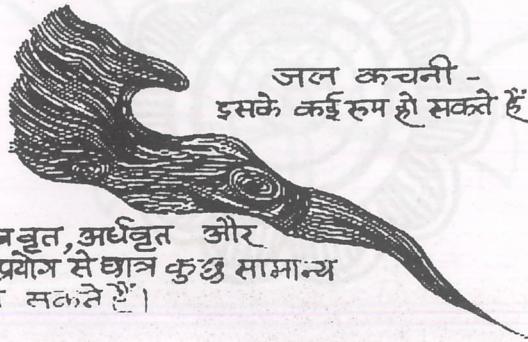 जल कचनी -
इसके कई रूप हो सकते हैं
वृत, अर्धवृत और
प्रयोग से छात्र कुछ सामान्य
सकते हैं।